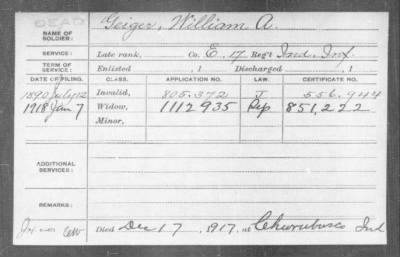 DEAD
NAME OF SOLDIER: Geiger, William A.
SERVICE: Late rank, Co. E. 17 Reg't Ind. Inf.
TERM OF SERVICE: Enlisted , 1 Discharged , 1
DATE OF FILING. CLASS. APPLICATION NO. LAW. CERTIFICATE NO.
1890 July 12 Invalid, 805.372 J 556.944
1918 Jan 7 Widow, 1112935 851,222
Minor,
ADDITIONAL SERVICES:
REMARKS:
Died Dec 17, 1917, at Churubusco Ind